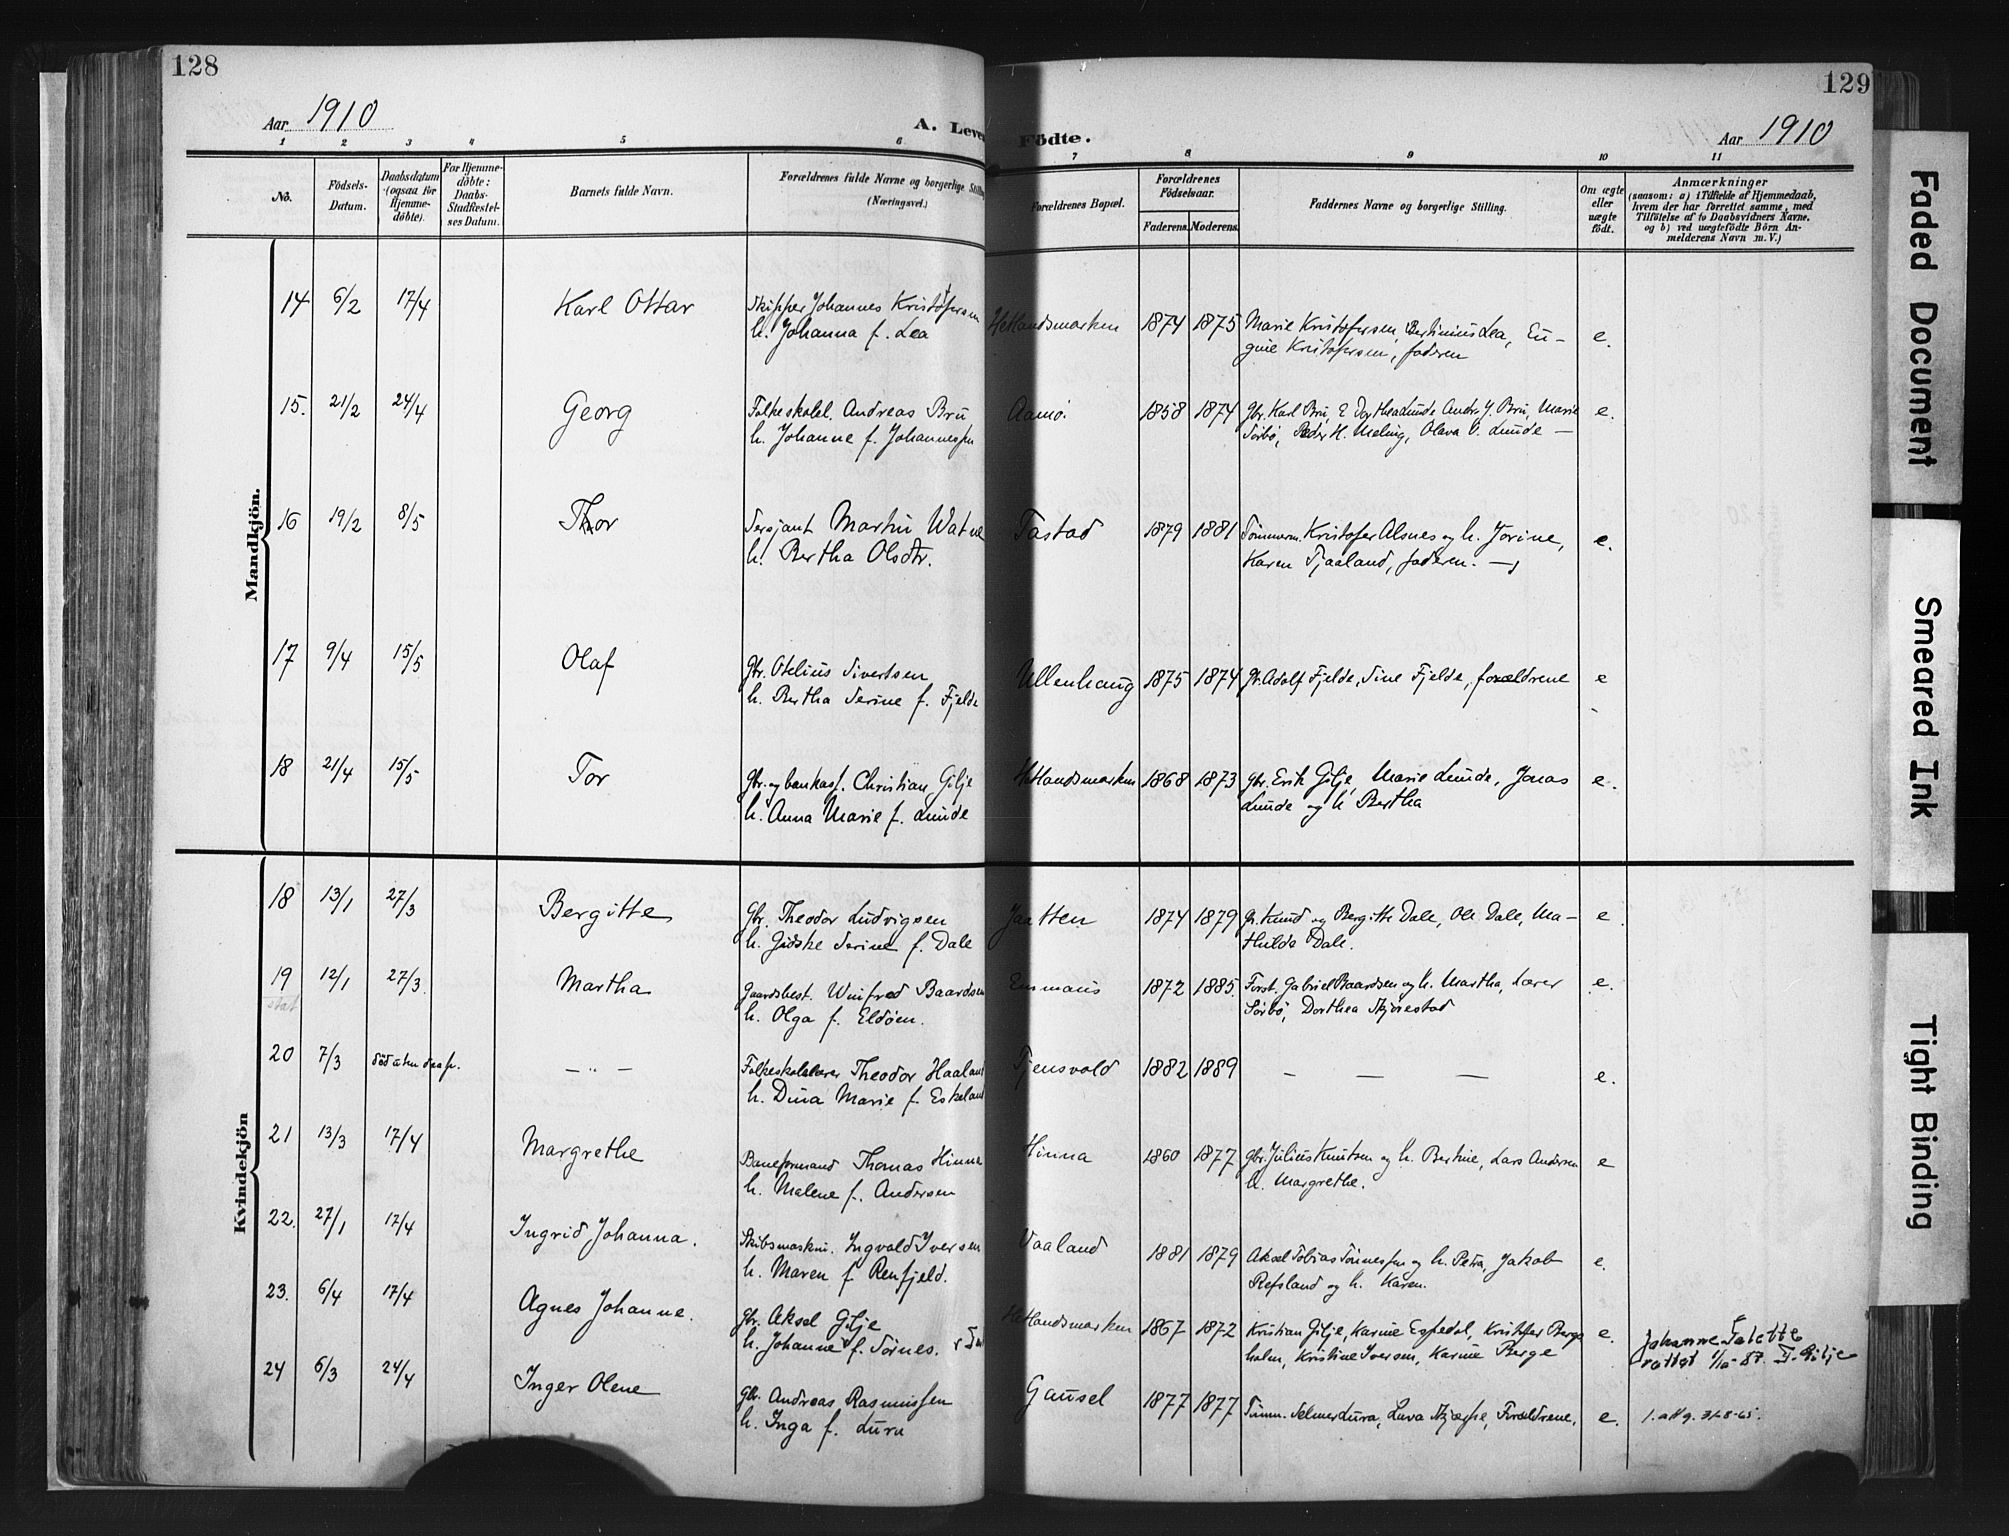 128
Aar 1910
A. Leve
1 2 3 4 5 6
No.
Födsels-
Datum.
Daabsdatum
(ogsaa for
Hjemme-
döbte).
For Hjemme-
döbte:
Daabs-
Stadfæstel-
ses Datum.
Barnets fulde Navn.
Forældrenes fulde Navne og borgerlige Stilling
(Næringsvei.)
Mandkjön.
14 6/2 17/4 Karl Ottar Skipper Johannes Kristofersen
h. Johanna f. Lea
15. 21/2 24/4 Georg Folkeskolel. Andreas Bru
h. Johanne f. Johannessen
16 19/2 8/5 Thor Sersjant Martin Watne
h. Bertha Olsdtr.
17 9/4 15/5 Olaf Gbr. Otelius Sivertsen
h. Bertha Serine f. Fjelde
18 21/4 15/5 Tor Gbr. og bankass. Christian Gilje
h. Anna Marie f. Lunde
Kvindekjön
18 13/1 27/3 Bergitte Gbr. Theodor Ludvigsen
h. Gidske Serine f. Dale
19 12/1 27/3. Martha Gaardsbest. Winfred Baardsen
h. Olga f. Eldøen.
20 7/3 död uten daap. — " — Folkeskolelærer Theodor Haaland
h. Dina Marie f. Eskeland
21 13/3 17/4 Margrethe Baneformand Thomas Hinna
h. Malene f. Andersen
22. 27/1 17/4 Ingrid Johanna. Skibsmaskin. Ingvald Iversen
h. Maren f. Renfjeld.
23. 6/4 17/4 Agnes Johanne. Gbr. Aksel Gilje
h. Johanne f. Sørnes.
24 6/3 24/4 Inger Olene Gbr. Andreas Rasmussen
h. Inga f. Lura
129
Födte. Aar 1910
7 8 9 10 11
Forældrenes Bopæl.
Forældrenes
Födselsaar.
Faderens. Moderens.
Faddernes Navne og borgerlige Stilling.
Om ægte
eller
uægte
födt.
Anmærkninger
(saasom: a) i Tilfælde af Hjemmedaab,
hvem der har forrettet samme, med
Tilföielse af to Daabsvidners Navne.
og b) ved uægtefödte Börn An-
melderens Navn m. V.)
Hetlandsmarken 1874 1875 Marie Kristofersen, Bertinius Lea, Eu- e.
genie Kristofersen, faderen
Aamø. 1858 1874 Gbr. Karl Bru, E Dorthea Lunde Andr. Y. Bru, Marie e.
Sørbø, Peder H. Meling, Olava O. Lunde —
Tastad 1879 1881 Tømmerm. Kristofer Alsnes og h. Jorine, e.
Karen Tjaaland, faderen. —
Ullenhaug 1875 1874 Gbr. Adolf Fjelde, Sine Fjelde, forældrene e
Hetlandsmarken 1868 1873 Gbr. Erik Gilje, Marie Lunde, Jonas e.
Lunde og h Bertha
Jaatten 1874 1879 Gb. Knud og Bergitte Dale, Ole Dale, Ma- e.
thilde Dale.
Emmaus 1872 1885. Forst. Gabriel Baardsen og h. Martha, Lærer e.
Sørbø, Dorthea Skjørestad
Tjensvold 1882 1889 — — — e.
Hinna 1860 1877 Gbr. Julius Knutsen og h. Bertine, Lars Andersen e
h. Margrethe.
Vaaland 1881 1879 Aksel Tobias Tønnessen og h. Petra, Jakob e.
Refsland og h. Karen.
Hetlandsmarken 1867 1872 Kristian Gilje, Karine Espedal, Kristofer Berge e.
holm, Kristine Iversen, Karine Berge
Gausel 1877 1877 Tømm. Selmer Lura, Lava Skjæpe, Forældrene. e. 1. att g. 31-8-65.
Faded Document
Smeared Ink
Tight Binding